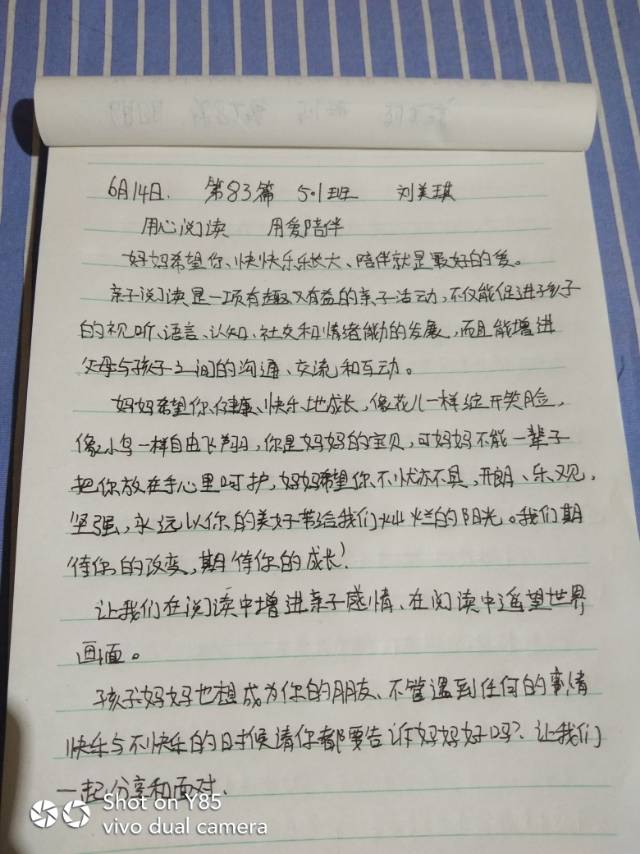 6月14日. 第83篇 5.1班 刘美琪
用心阅读 用爱陪伴
妈妈希望你、快快乐乐长大、陪伴就是最好的爱。
亲子阅读是一项有趣又有益的亲子活动,不仅能促进孩子
的视听、语言、认知、社交和情绪能力的发展,而且能增进
父母与孩子之间的沟通、交流和互动。
妈妈希望你、健康、快乐地成长,像花儿一样绽开笑脸,
像小鸟一样自由飞翔,你是妈妈的宝贝,可妈妈不能一辈子
把你放在手心里呵护,妈妈希望你不忧亦不具,开朗、乐观,
坚强,永远以你的美好带给我们灿烂的阳光。我们期
待你的改变,期待你的成长!
让我们在阅读中增进亲子感情、在阅读中遥望世界
画面。
孩子妈妈也想成为你的朋友、不管遇到任何的事情
快乐与不快乐的时候请你都要告诉妈妈好吗?让我们
一起分享和面对.
Shot on Y85
vivo dual camera